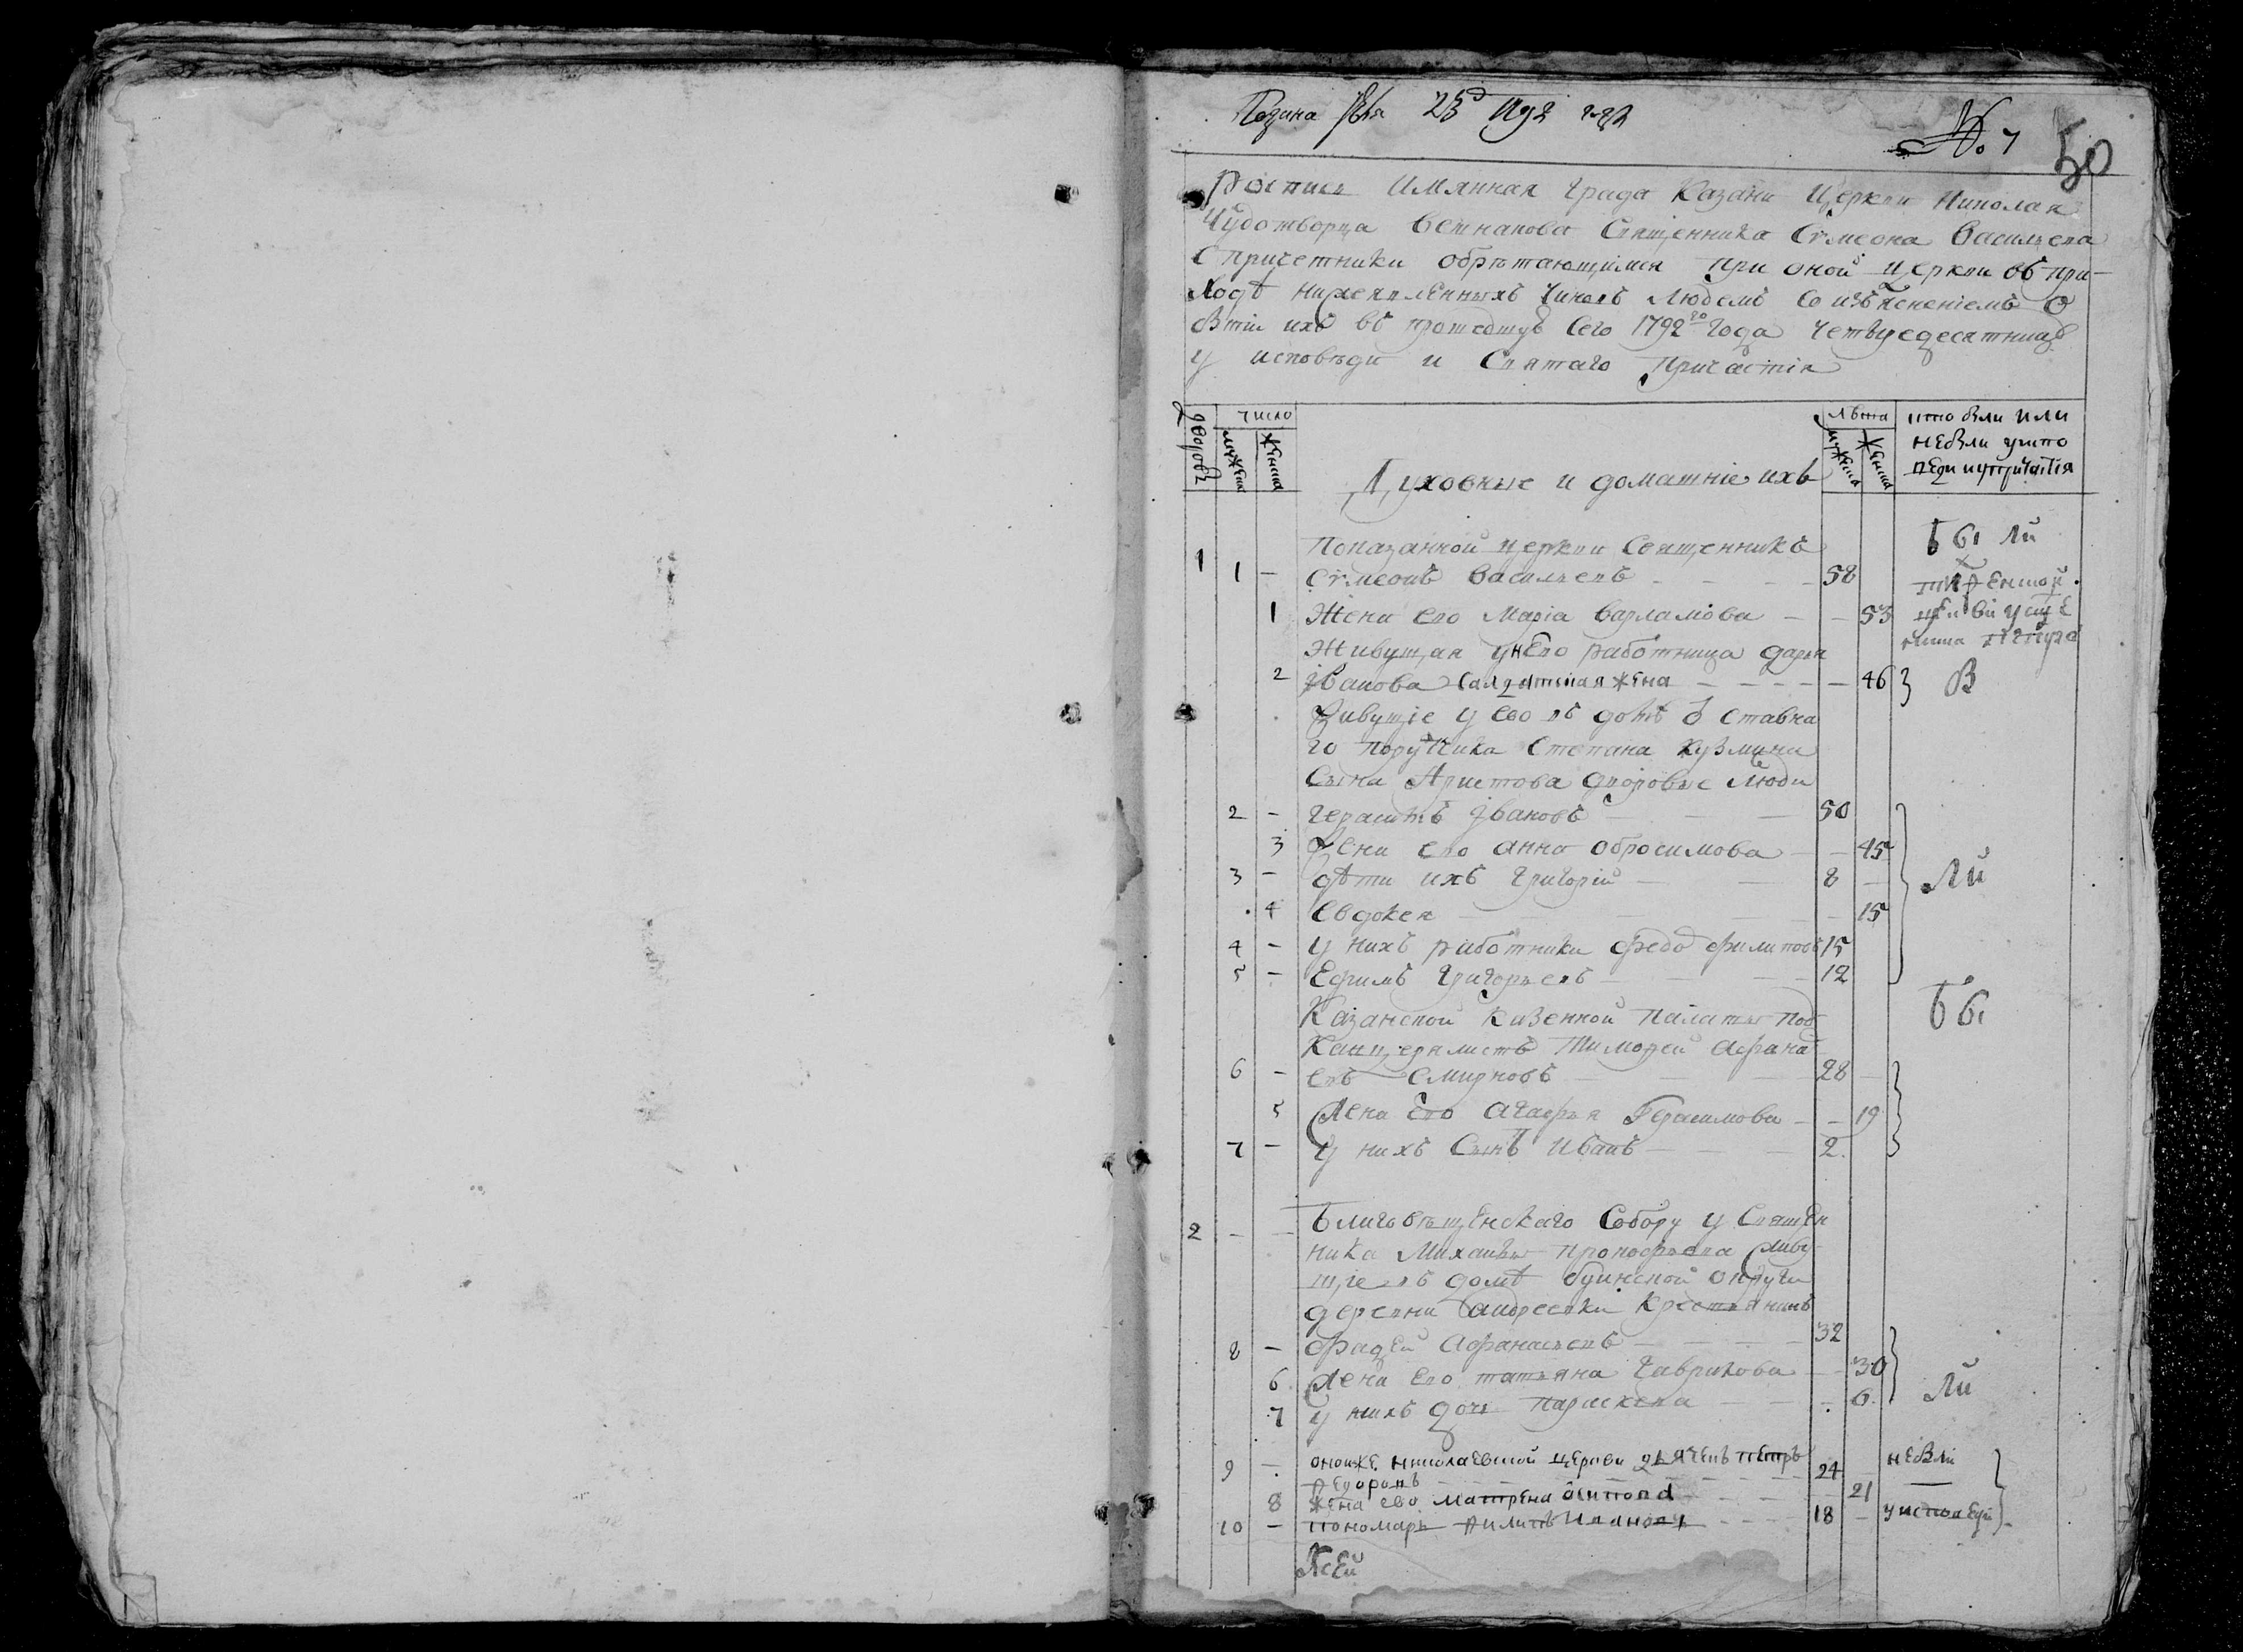 Подана 23д 1792 года
№ 7
50
Роспись Имянная града Казани Церкви Николая
Чудотворца Священника Сѵмеона Васильева
с причетники обрѣтающимся при оной церкви въ при-
ходѣ нижеявленныхъ чиновъ людемъ со изъясненіемъ о
бытіи ихъ въ прошедшую сего 1792го года четыредесятницу
у исповѣди и Святаго Причастія
дворовъ
число
мужеска
женска
Духовные и домашніе ихъ
лѣта
мужеска
женска
кто были или
не были у испо
веди и у причастія
1 1 - Показанной церкви Священникъ
Сѵмеонъ Васильевъ - - - 58
Были
1 Жена ево Маріа Варламова - - 53
Живущая у него работница Дарья
2 Іванова салдатская жена - - - - 46 } В
Живущіе у ево въ домѣ о ставна
го Порутчика Степана Кузмина
Сына Аристова дворовые люди
2 - Герасимъ Івановъ - - 50
3 Жена ево Анна Обросимова - - 45
3 - дѣти ихъ Григорій - - 8 -
ли
4 Евдокея - - 15
4 - у нихъ работники Федо Филиповъ 15
5 - Ефимъ Григорьевъ - - 12
Казанской Казенной Палаты Под
Бы
Канцеляристъ Тимофей Афана
6 - евъ Смирновъ - - 28 -
5 Жена ево Агафья Герасимова - - 19
7 - у нихъ Сынъ Иванъ - - 2
2 - - Благовѣщенскаго Собору у Священ
ника Михаила Прокофьева живу
щіе въ домѣ Буинской округи
деревни Андреевки Крестьянинъ
8 - Фадей Афанасьевъ - - 32
6 Жена ево Татьяна Гаврилова - - 30
7 у нихъ дочь Параскева - - 6
ли
9 - оной же Николаевской церкви дьячекъ Петръ
Федоровъ - - - 24
не были
8 жена ево Матрена Осипова - - 21
10 - пономарь Филипъ Ивановъ - - - 18 -
у исповеди
Всей